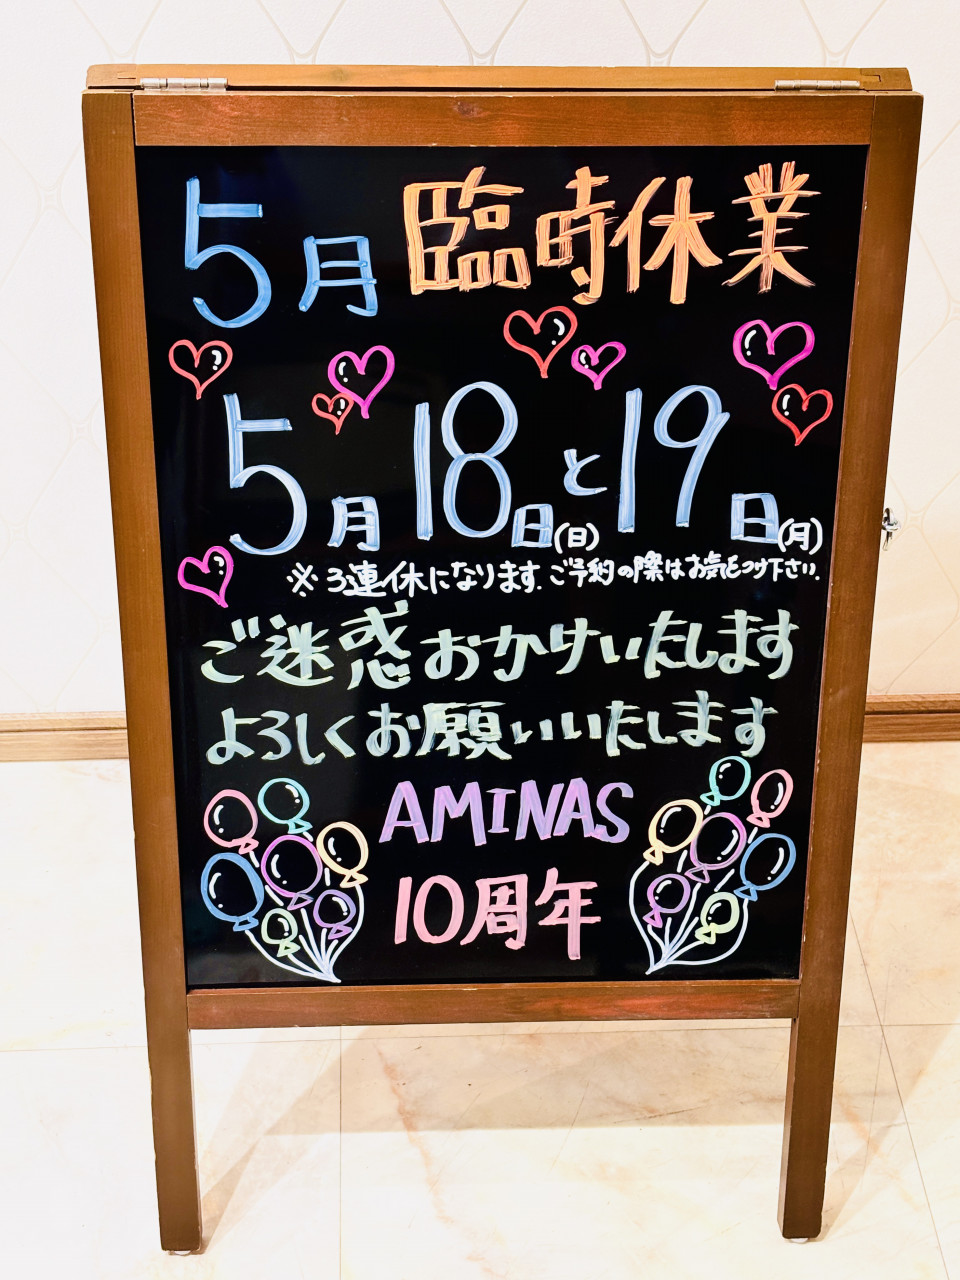 5月 臨時休業
5月18日(日)と19日(月)
※3連休になります.ご予約の際はお気をつけ下さい.
ご迷惑おかけいたします
よろしくお願いいたします
AMINAS
10周年